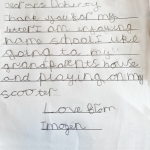 thank you for my
letter I am injoying
home shool I like
going to my
grandparents house
and playing on my
scooter.
Love from
Imogen